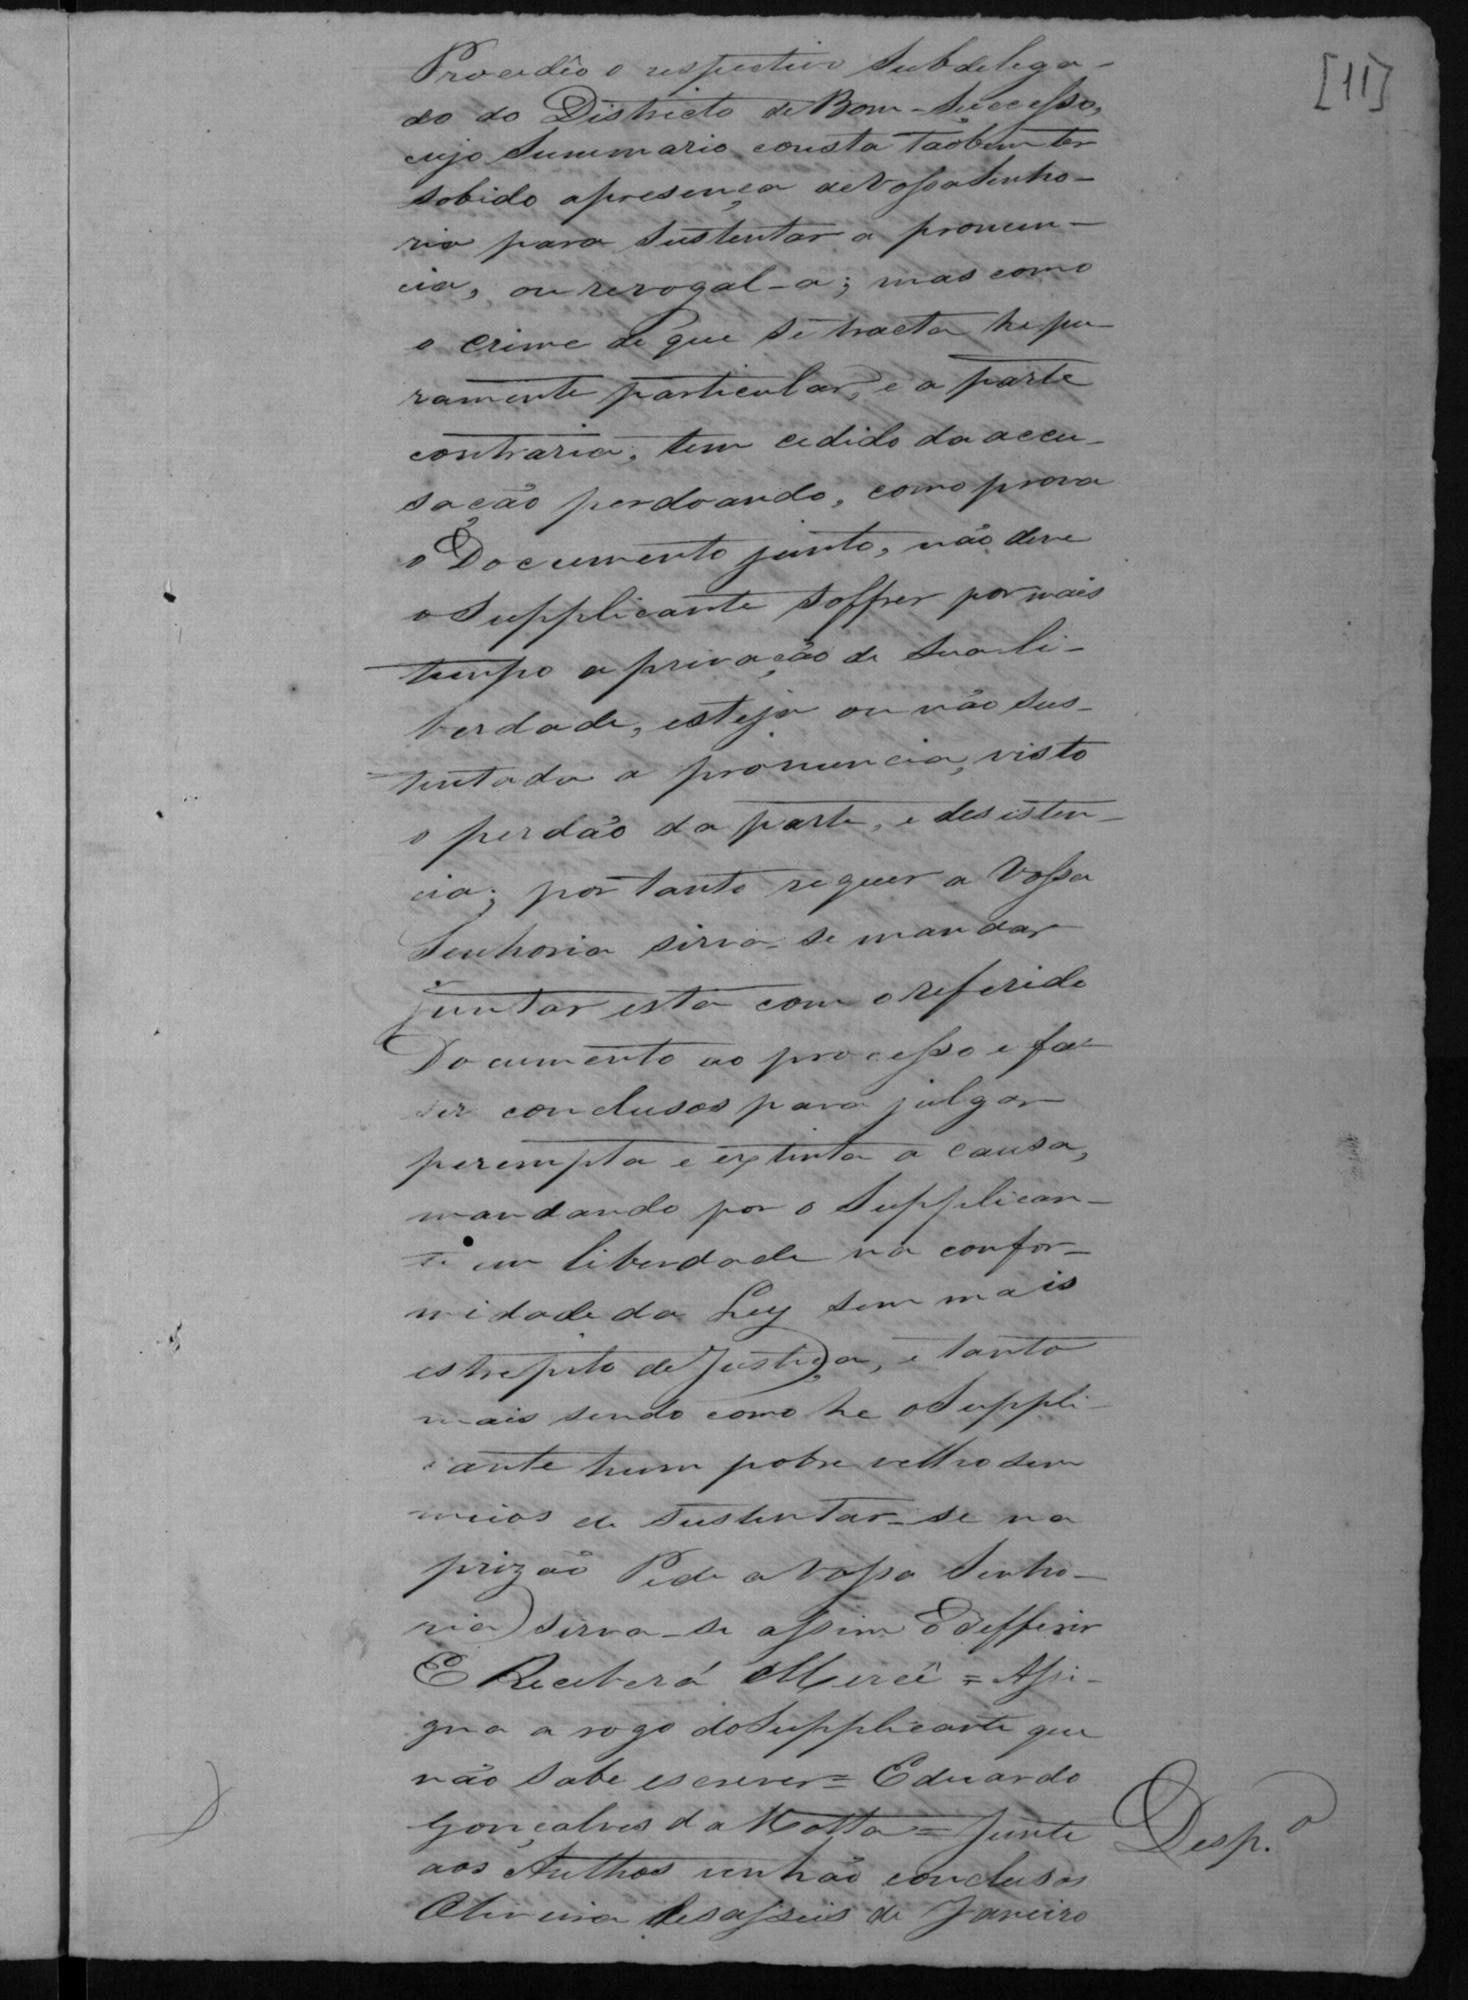 [11]
Procedêo o respectivo Subdelega-
do do Districto de Bom-Successo,
cujo Summario consta taobem ter
sobido apresença de Vossa Senho-
ria para sustentar a pronun-
cia, ou revogal-a; mas como
o crime de que se tracta he pu-
ramente particular, e a parte
contraria, tem cedido da accu-
sação perdoando, como prova
o Documento junto, não deve
o Supplicante soffrer por mais
tempo a privação de Sua li-
berdade, esteja ou não sus-
tentada a pronuncia, visto
o perdão da parte, e desisten-
cia; por tanto requer a Vossa
Senhoria sirva-se mandar
juntar esta com o referido
Documento ao processo e fa-
ser conclusos para julgar
perempta e extinta a causa,
mandando por o Supplican-
te em liberdade na confor-
midade da Ley sem mais
estrepito de Justiça, e tanto
mais sendo como he o Suppli-
cante hum pobre velho sem
meios de sustentar-se na
prizaõ Pede a Vossa Senho-
ria sirva-se assim o defferir
E Receberá Mercê = Assi-
gna a rogo do Supplicante que
não sabe escrever = Eduardo
Gonçalves da Motta = Junte
Desp.o
aos Authos venhão conclusos
Oliveira desasseis de Janeiro